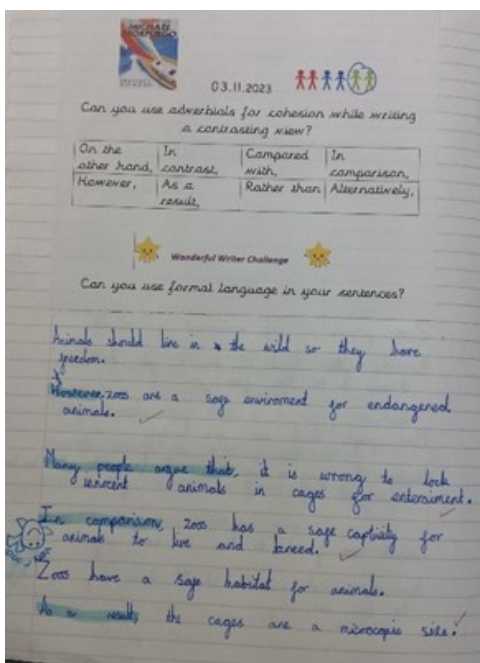 MICHAEL
MORPURGO
03.11.2023
Can you use adverbials for cohesion while writing
a contrasting view?
On the other hand, In contrast, Compared with, In comparison,
However, As a result, Rather than Alternatively,
Wonderful Writer Challenge
Can you use formal language in your sentences?
Animals should live in the wild so they have
freedom.
However, zoos are a safe enviroment for endangered
animals.
Many people argue that, it is wrong to lock
innocent animals in cages for
In comparison, zoos has a safe captivity for
animals to live and breed.
Zoos have a safe habitat for animals.
As a result, the cages are a size.